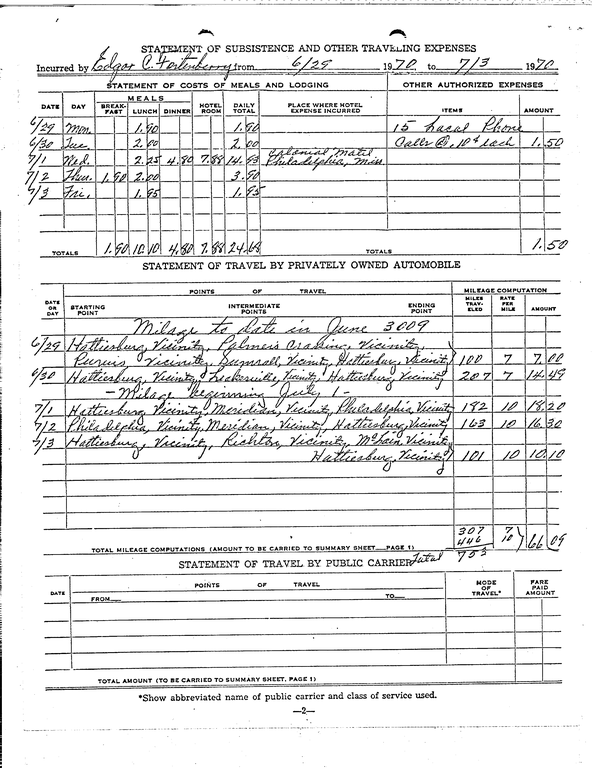 STATEMENT OF SUBSISTENCE AND OTHER TRAVELING EXPENSES
Incurred by Edgar C. Fortenberry from 6/29 1970 to 7/3 1970
STATEMENT OF COSTS OF MEALS AND LODGING OTHER AUTHORIZED EXPENSES
DATE DAY MEALS BREAK-FAST LUNCH DINNER HOTEL ROOM DAILY TOTAL PLACE WHERE HOTEL EXPENSE INCURRED ITEMS AMOUNT
6/29 Mon. 1.90 1.90 15 Local Phone
6/30 Tue. 2.00 2.00 Calls @ 10¢ each 1.50
7/1 Wed. 2.25 4.80 7.88 14.93 Colonial Motel Philadelphia, Miss.
7/2 Thur. 1.90 2.00 3.90
7/3 Fri. 1.95 1.95
TOTALS 1.90 10.10 4.80 7.88 24.68 TOTALS 1.50
STATEMENT OF TRAVEL BY PRIVATELY OWNED AUTOMOBILE
DATE OR DAY POINTS OF TRAVEL MILEAGE COMPUTATION
STARTING POINT INTERMEDIATE POINTS ENDING POINT MILES TRAV-ELED RATE PER MILE AMOUNT
Milage to Date in June 3009
6/29 Hattiesburg, Vicinity, Palmers Crossing, Vicinity,
Purvis Vicinity, Sumrall, Vicinity, Hattiesburg, Vicinity 100 7 7.00
6/30 Hattiesburg, Vicinity, Vicinity, Hattiesburg, Vicinity 207 7 14.49
- Milage beginning July 1 -
7/1 Hattiesburg Vicinity, Meridian, Vicinity, Philadelphia, Vicinity 182 10 18.20
7/2 Philadelphia Vicinity, Meridian, Vicinity, Hattiesburg, Vicinity 163 10 16.30
7/3 Hattiesburg, Vicinity, Richton, Vicinity, McLain, Vicinity,
Hattiesburg, Vicinity 101 10 10.10
307 7
TOTAL MILEAGE COMPUTATIONS (AMOUNT TO BE CARRIED TO SUMMARY SHEET PAGE 1) 446 10 66.09
STATEMENT OF TRAVEL BY PUBLIC CARRIER Total 753
DATE POINTS OF TRAVEL MODE OF TRAVEL* FARE PAID AMOUNT
FROM TO
TOTAL AMOUNT (TO BE CARRIED TO SUMMARY SHEET, PAGE 1)
*Show abbreviated name of public carrier and class of service used.
—2—